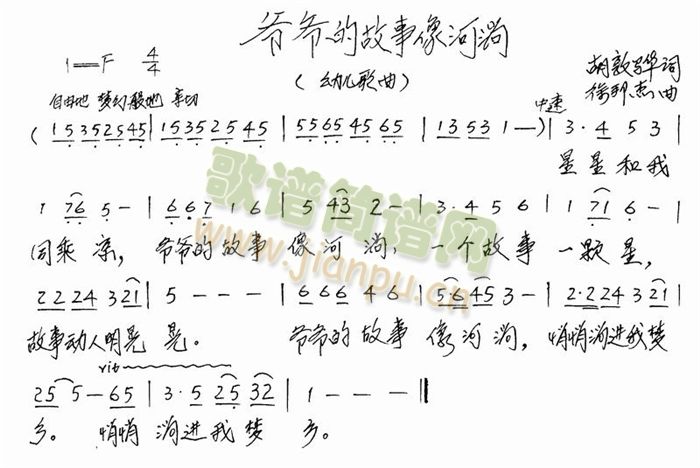 爷爷的故事像河淌
1=F 4/4
(幼儿歌曲)
胡敦骅词
徐邦杰曲
自由地 梦幻般地 亲切
中速
(1535 2545 | 1535 25 45 | 5565 45 65 | 13 53 1 —) | 3· 4 5 3 |
星星和我
1 76 5 — | 6 6 7 1 6 | 5 43 2 — | 3· 4 5 6 | 1 71 6 — |
同乘凉, 爷爷的故事 像河淌; 一个故事 一颗星,
22 24 3 21 | 5 — — — | 6 6 6 4 6 | 5·6 45 3 — | 2·2 24 3 21 |
故事动人明晃晃。 爷爷的故事 像河淌, 悄悄淌进我梦
rit
25 5 — 65 | 3· 5 25 32 | 1 — — — ‖
乡。 悄悄 淌进我梦 乡。
歌谱简谱网
www.jianpu.cn